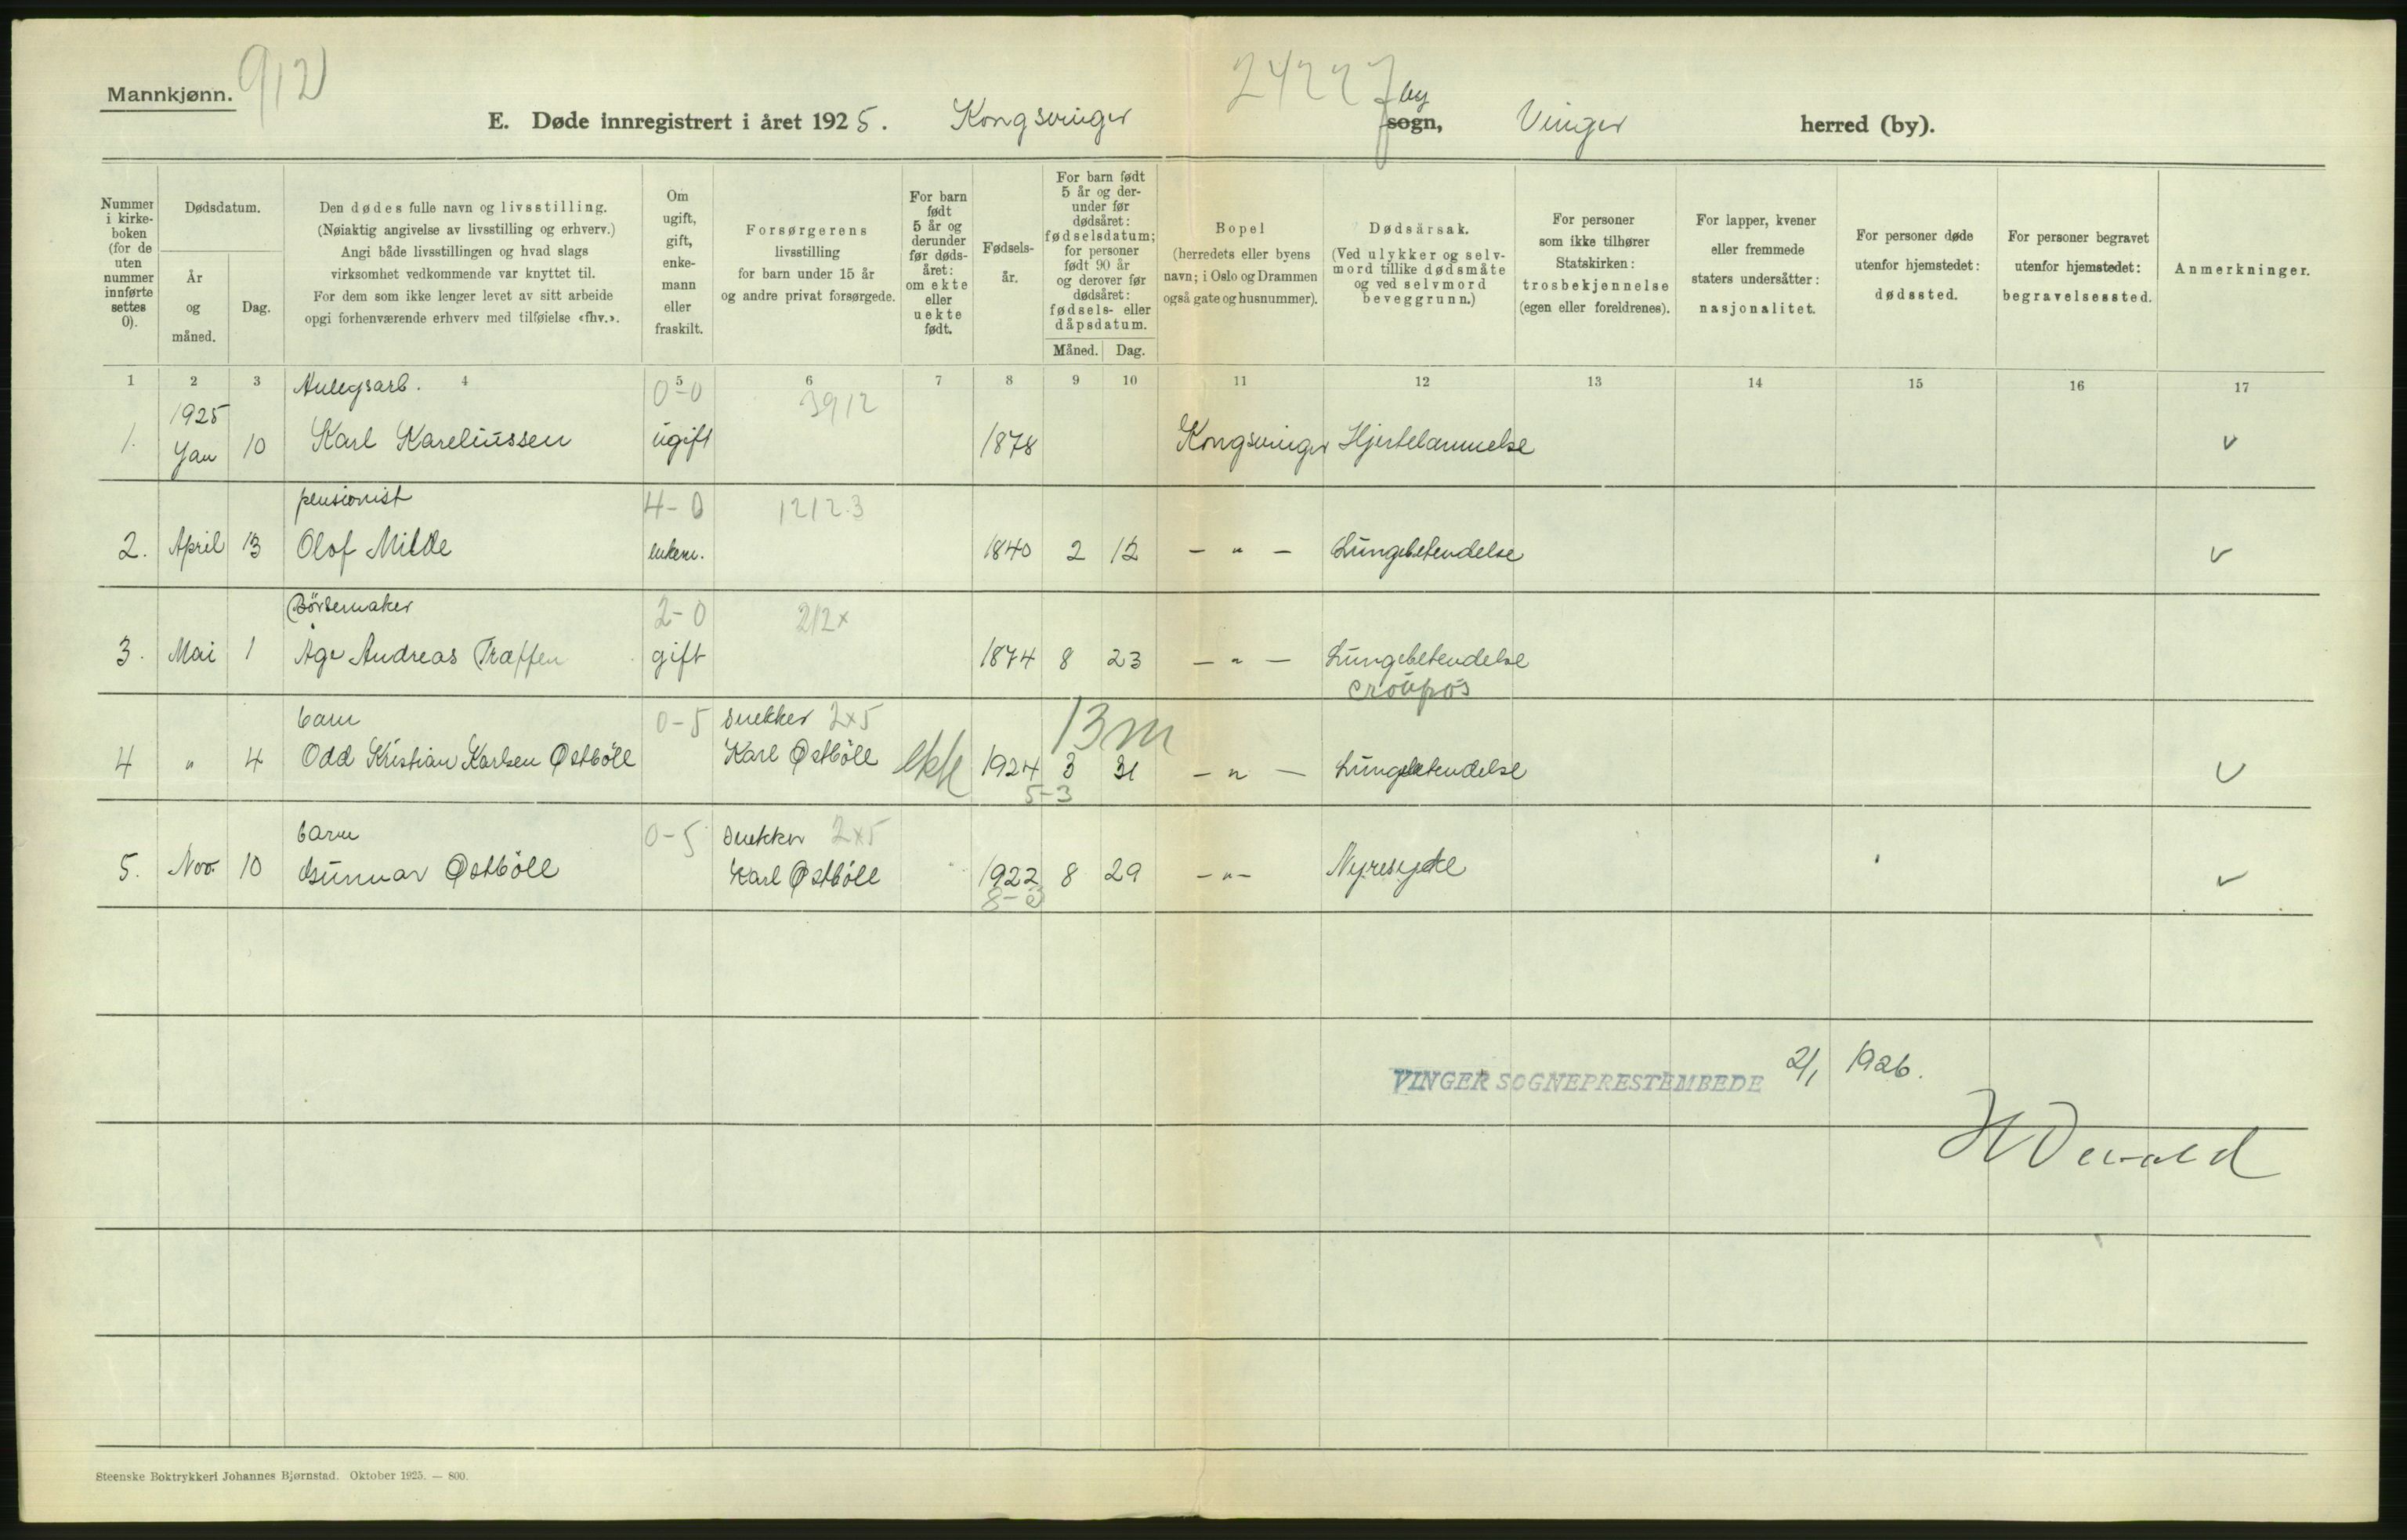 Mannkjønn. 912
24227
by
E. Døde innregistrert i året 1925. Kongsvinger sogn, Vinger herred (by).
Nummer i kirkeboken (for de uten nummer innførte settes 0).
Dødsdatum.
År og måned.
Dag.
Den dødes fulle navn og livsstilling.
(Nøiaktig angivelse av livsstilling og erhverv.)
Angi både livsstillingen og hvad slags
virksomhet vedkommende var knyttet til.
For dem som ikke lenger levet av sitt arbeide
opgi forhenværende erhverv med tilføielse «fhv.».
Om ugift, gift, enkemann eller fraskilt.
Forsørgerens
livsstilling
for barn under 15 år
og andre privat forsørgede.
For barn født 5 år og derunder før dødsåret: om ekte eller uekte født.
Fødselsår.
For barn født 5 år og derunder før dødsåret: fødselsdatum; for personer født 90 år og derover før dødsåret: fødsels- eller dåpsdatum.
Måned. Dag.
Bopel
(herredets eller byens
navn; i Oslo og Drammen
også gate og husnummer).
Dødsårsak.
(Ved ulykker og selvmord tillike dødsmåte og ved selvmord beveggrunn.)
For personer
som ikke tilhører
Statskirken:
trosbekjennelse
(egen eller foreldrenes).
For lapper, kvener
eller fremmede
staters undersåtter:
nasjonalitet.
For personer døde
utenfor hjemstedet:
dødssted.
For personer begravet
utenfor hjemstedet:
begravelsessted.
Anmerkninger.
1 2 3 4 5 6 7 8 9 10 11 12 13 14 15 16 17
Anlegsarb. 0-0 3912
1925
1. Jan 10 Karl Kareliussen ugift 1878 Kongsvinger Hjertelammelse v
pensionist 4-0 1212.3
2. April 13 Olof Milde enkem. 1840 2 12 - " - Lungebetendelse v
Børsemaker 2-0 212x
3. Mai 1 Åge Andreas Træffen gift 1874 8 23 - " - Lungebetendelse
croupøs
barn 0-5 snekker 2x5 13 m
4 " 4 Odd Kristian Karlsen Østbøll Karl Østbøll ekte 1924 3 31 - " - Lungebetendelse v
5-3
barn 0-5 snekker 2x5
5. Nov. 10 Gunnar Østbøll Karl Østbøll 1922 8 29 - " - Nyresyke v
VINGER SOGNEPRESTEMBEDE 2/1 1926.
Steenske Boktrykkeri Johannes Bjørnstad. Oktober 1925. — 800.